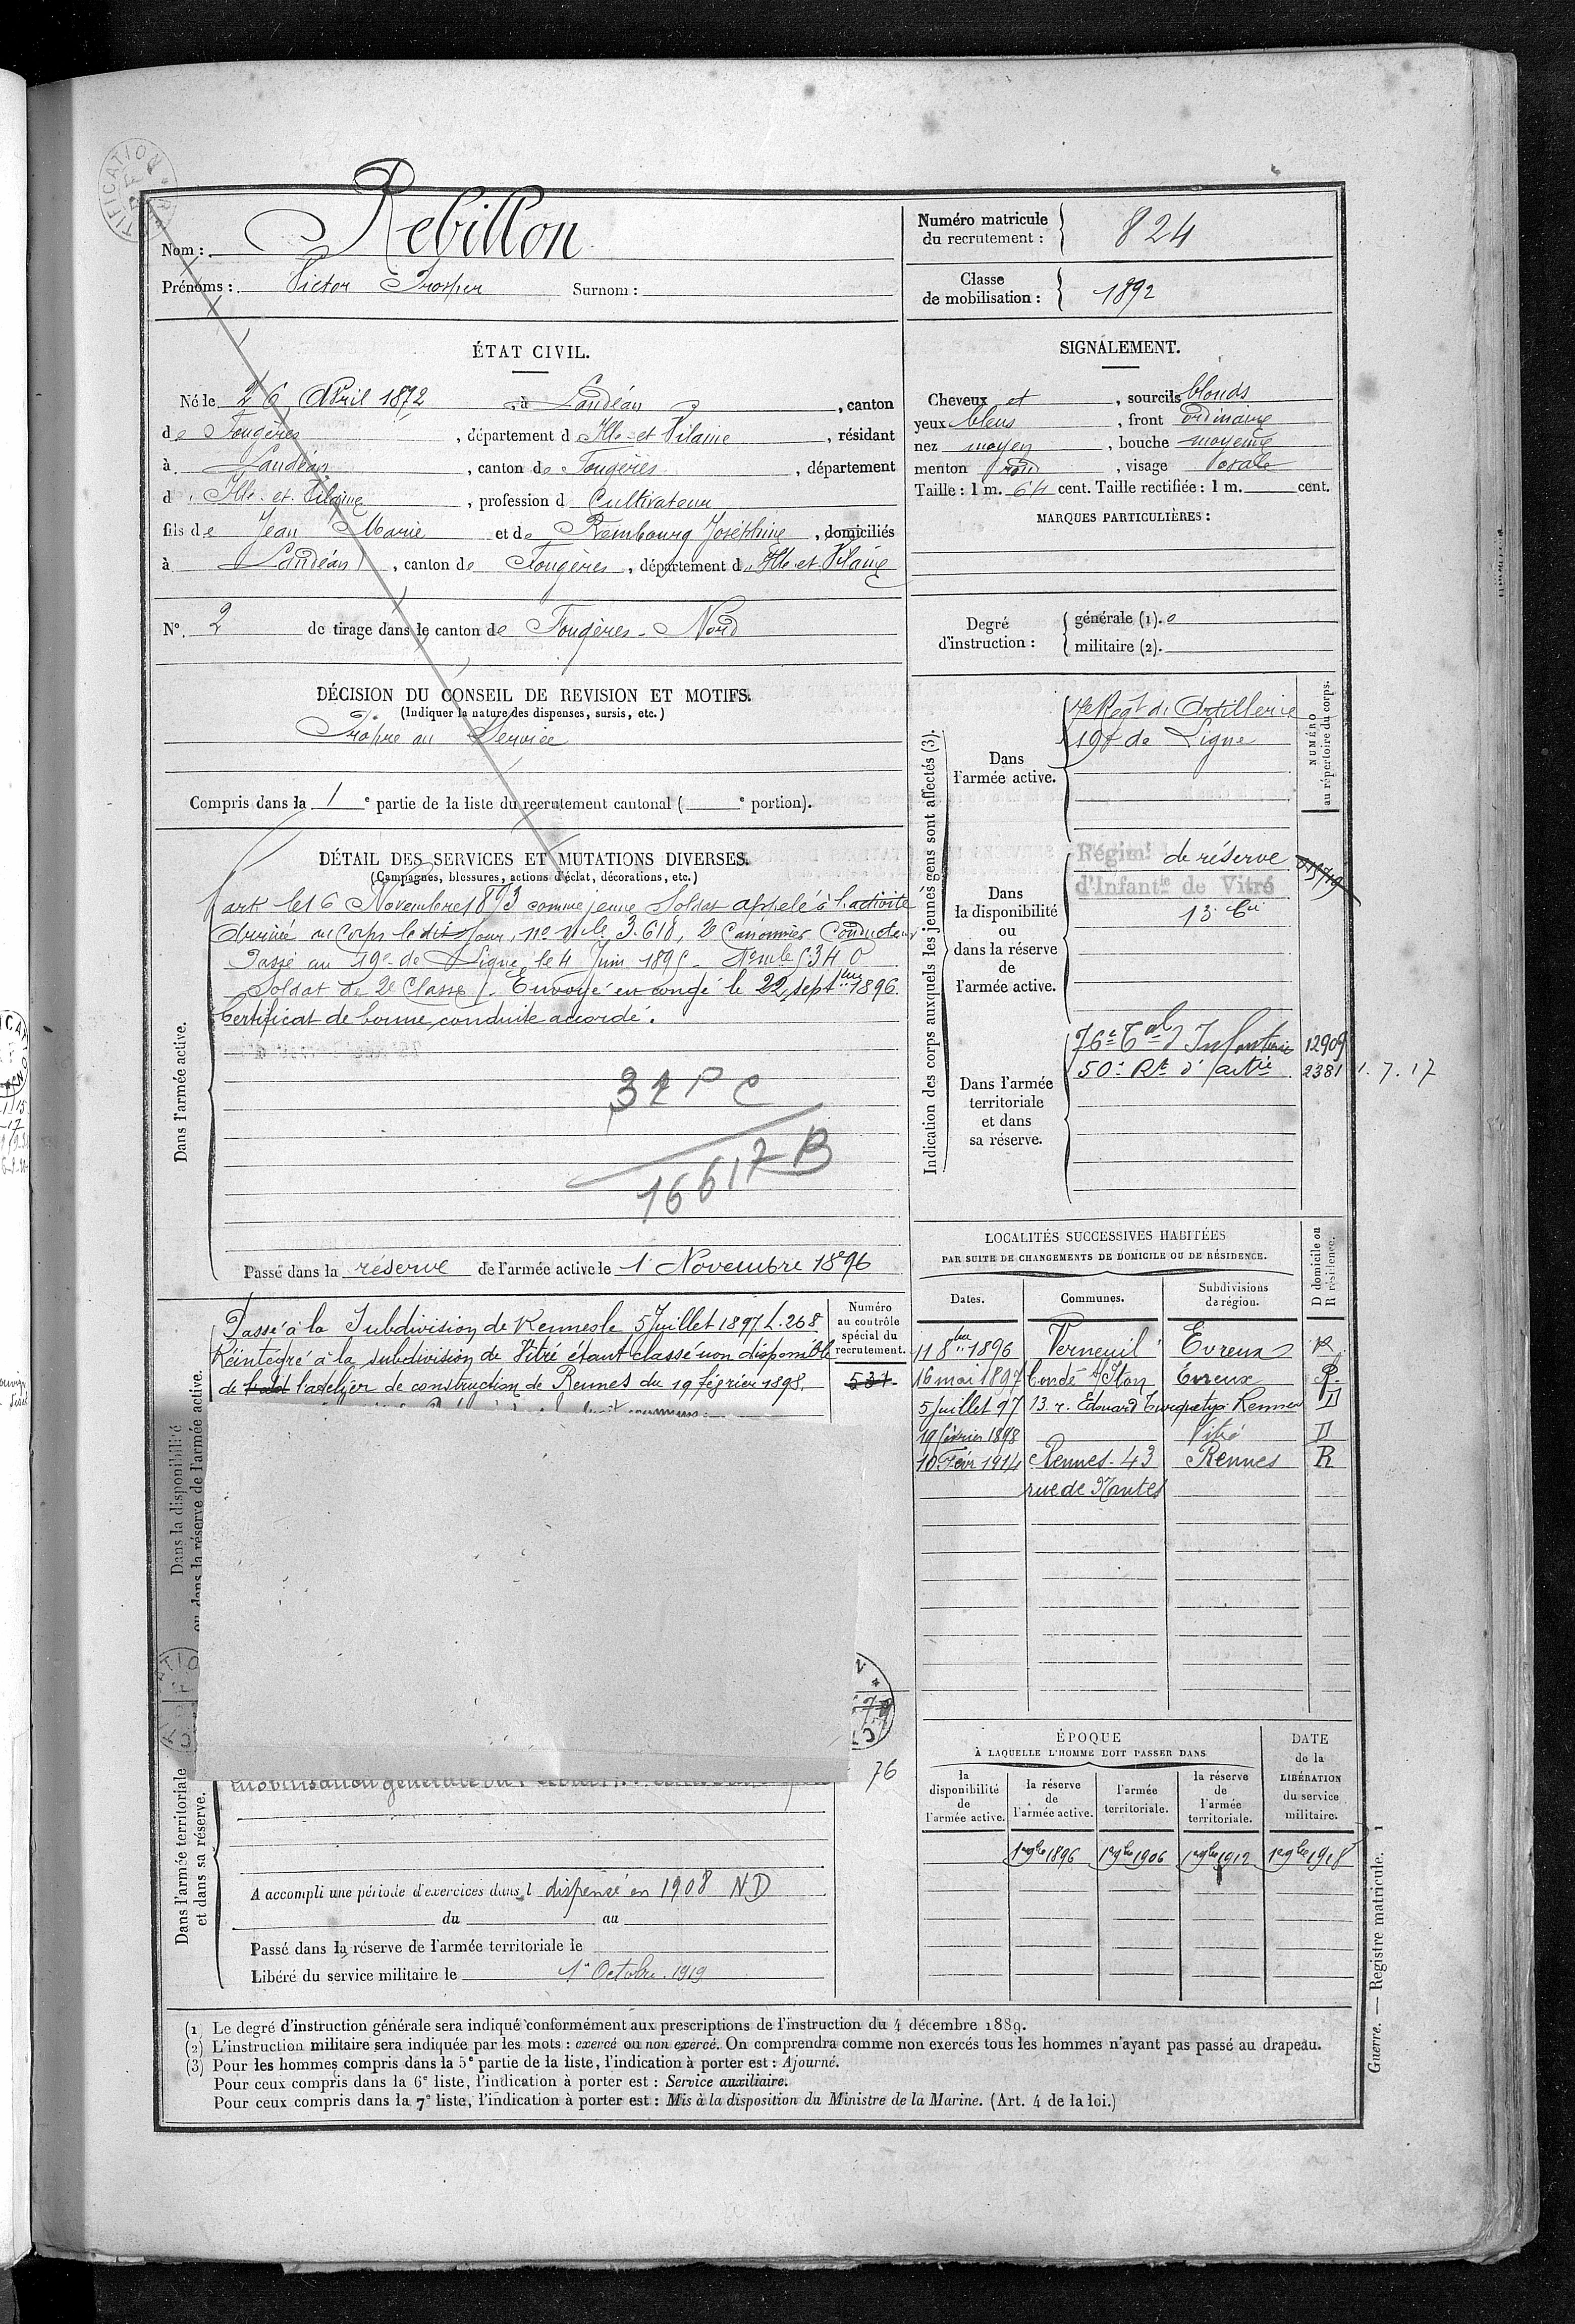 Nom : Rebillon
Prénoms : Victor Prosper Surnom :
Numéro matricule du recrutement : 824
Classe de mobilisation : 1892
ÉTAT CIVIL.
Né le 26 Avril 1872, à Landéan, canton
de Fougères, département d Ille-et-Vilaine, résidant
à Landéan, canton de Fougères, département
d Ille-et-Vilaine, profession d Cultivateur
fils de Jean Marie et de Rembourg Joséphine, domiciliés
à Landéan, canton de Fougères, département d Ille-et-Vilaine
N° 2 de tirage dans le canton de Fougères-Nord
SIGNALEMENT.
Cheveux et, sourcils blonds
yeux bleus, front ordinaire
nez moyen, bouche moyenne
menton rond, visage ovale
Taille : 1 m. 64 cent. Taille rectifiée : 1 m. cent.
MARQUES PARTICULIÈRES :
Degré d'instruction :
générale (1). 0
militaire (2).
DÉCISION DU CONSEIL DE REVISION ET MOTIFS.
(Indiquer la nature des dispenses, sursis, etc.)
Propre au Service
Compris dans la 1e partie de la liste du recrutement cantonal ( e portion).
DÉTAIL DES SERVICES ET MUTATIONS DIVERSES.
(Campagnes, blessures, actions d'éclat, décorations, etc.)
Dans l'armée active.
Part le 16 Novembre 1893 comme jeune Soldat appelé à l'activité
Arrivé au Corps le dit jour, no mle 3.618, 2e Canonnier Conducteur
Passé au 19e de Ligne le 4 Juin 1895 - No mle 5340
Soldat de 2e Classe. Envoyé en congé le 22 septbre 1896.
Certificat de bonne conduite accordé.
16617 B
Passé dans la réserve de l'armée active le 1er Novembre 1896
Indication des corps auxquels les jeunes gens sont affectés (3).
NUMÉRO au répertoire du corps.
Dans l'armée active.
7e Regt d'Artillerie
19e de Ligne
Dans la disponibilité ou dans la réserve de l'armée active.
Régimt de réserve
d'Infantie de Vitré
13e Cie
Dans l'armée territoriale et dans sa réserve.
76e Tal d'Infanterie 12909
50e Rt d'artie 2381 1.7.17
Dans la disponibilité ou dans la réserve de l'armée active.
Numéro au contrôle spécial du recrutement.
Passé à la Subdivision de Rennes le 5 Juillet 1897 L. 268
Réintégré à la subdivision de Vitré étant classé non disponible
de l'atelier de construction de Rennes du 19 février 1898.
531
76
LOCALITÉS SUCCESSIVES HABITÉES
PAR SUITE DE CHANGEMENTS DE DOMICILE OU DE RÉSIDENCE.
Dates. Communes. Subdivisions de région. D domicile ou R résidence.
11 8bre 1896 Verneuil Evreux R
16 mai 1897 Condé s/ Iton Évreux R.
5 Juillet 97 13. r. Edouard Turquety Rennes D
19 février 1898 Vitré D
10 Févr 1914 Rennes. 43 Rennes R
rue de Nantes
ÉPOQUE
À LAQUELLE L'HOMME DOIT PASSER DANS
la disponibilité de l'armée active.
la réserve de l'armée active.
l'armée territoriale.
la réserve de l'armée territoriale.
DATE de la LIBÉRATION du service militaire.
1er 9bre 1896 1er 9bre 1906 1er 9bre 1912 1er 9bre 1918
Dans l'armée territoriale et dans sa réserve.
A accompli une période d'exercices dans l dispensé en 1908 ND
du au
Passé dans la réserve de l'armée territoriale le
Libéré du service militaire le 1er Octobre 1919
Guerre. — Registre matricule. 1
(1) Le degré d'instruction générale sera indiqué conformément aux prescriptions de l'instruction du 4 décembre 1889.
(2) L'instruction militaire sera indiquée par les mots : exercé ou non exercé. On comprendra comme non exercés tous les hommes n'ayant pas passé au drapeau.
(3) Pour les hommes compris dans la 5e partie de la liste, l'indication à porter est : Ajourné.
Pour ceux compris dans la 6e liste, l'indication à porter est : Service auxiliaire.
Pour ceux compris dans la 7e liste, l'indication à porter est : Mis à la disposition du Ministre de la Marine. (Art. 4 de la loi.)